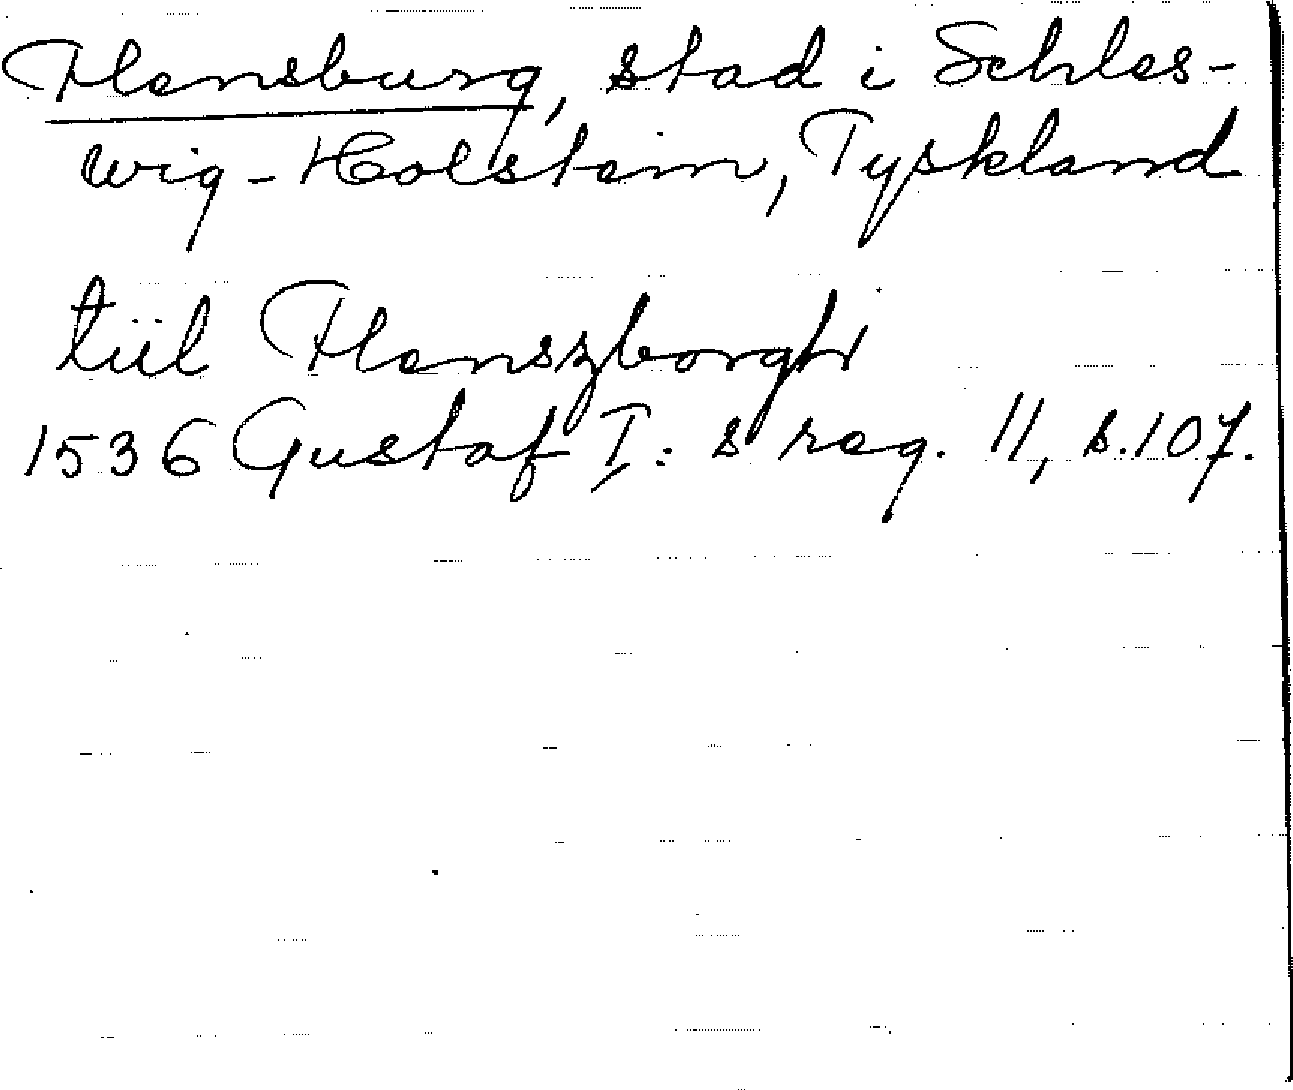 Flensburg, stad i Schles-
wig-Holstein, Tyskland
tiil Flenszborgh
1536 Gustaf I: s reg. 11, s. 107.